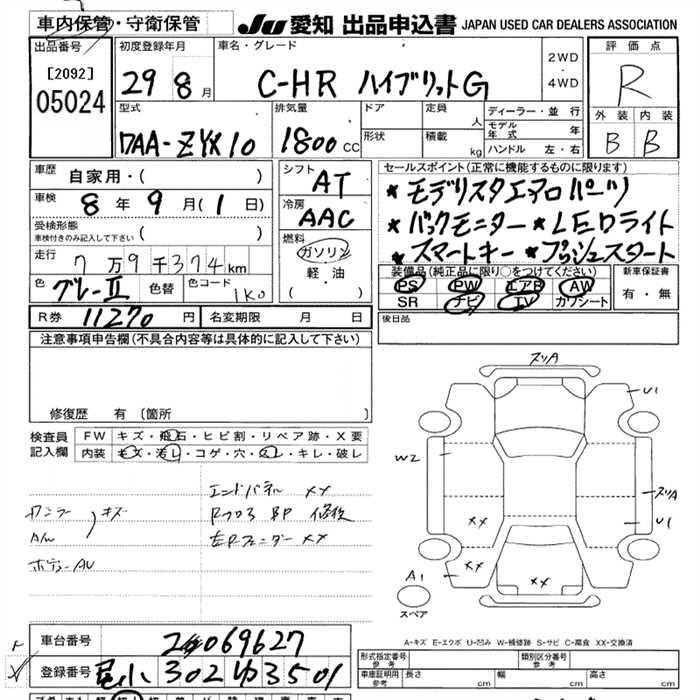 車内保管・守衛保管
JU 愛知 出品申込書 JAPAN USED CAR DEALERS ASSOCIATION
出品番号
[2092]
05024
初度登録年月
29 8月
車名・グレード
C-HR ハイブリットG
2WD
・
4WD
評価点
R
外装 内装
B B
型式
DAA-ZYX10
排気量
1800cc
ドア
形状
定員
人
積載
kg
ディーラー・並行
モデル年式 年
ハンドル 左・右
車歴 自家用・( )
車検 8年9月(1日)
受検形態
車検付きのみ記入して下さい ( )
走行 7万9千374km
色 グレーII 色替 色コード 1K0
シフト
AT
冷房
AAC
燃料
ガソリン
軽・油
( )
セールスポイント(正常に機能するものに限ります)
★モデリスタエアロパーツ
★バックモニター ★LEDライト
★スマートキー ★プッシュスタート
装備品(純正品に限り○をつけてください)
PS PW エアB AW
SR ナビ TV カワシート
新車保証書
有・無
R券 11270円 名変期限 月 日
後日品
注意事項申告欄(不具合内容等は具体的に記入して下さい)
修復歴 有〔箇所 〕
検査員記入欄
FW キズ・飛石・ヒビ割・リペア跡・X要
内装 キズ・汚レ・コゲ・穴・スレ・キレ・破レ
エンドパネル XX
キズ
Rフロア 修役
左Rフェンダー XX
スリA
U1
W2
スリA
U1
XX
XX
A1
スペア
A-キズ E-エクボ U-凹み W-補修跡 S-サビ C-腐食 XX-交換済
車台番号 069627
登録番号 尾小 302 ゆ 3501
形式指定番号 参考
類別区分番号 参考
車庫証明用 参考
長さ cm
幅 cm
高さ cm